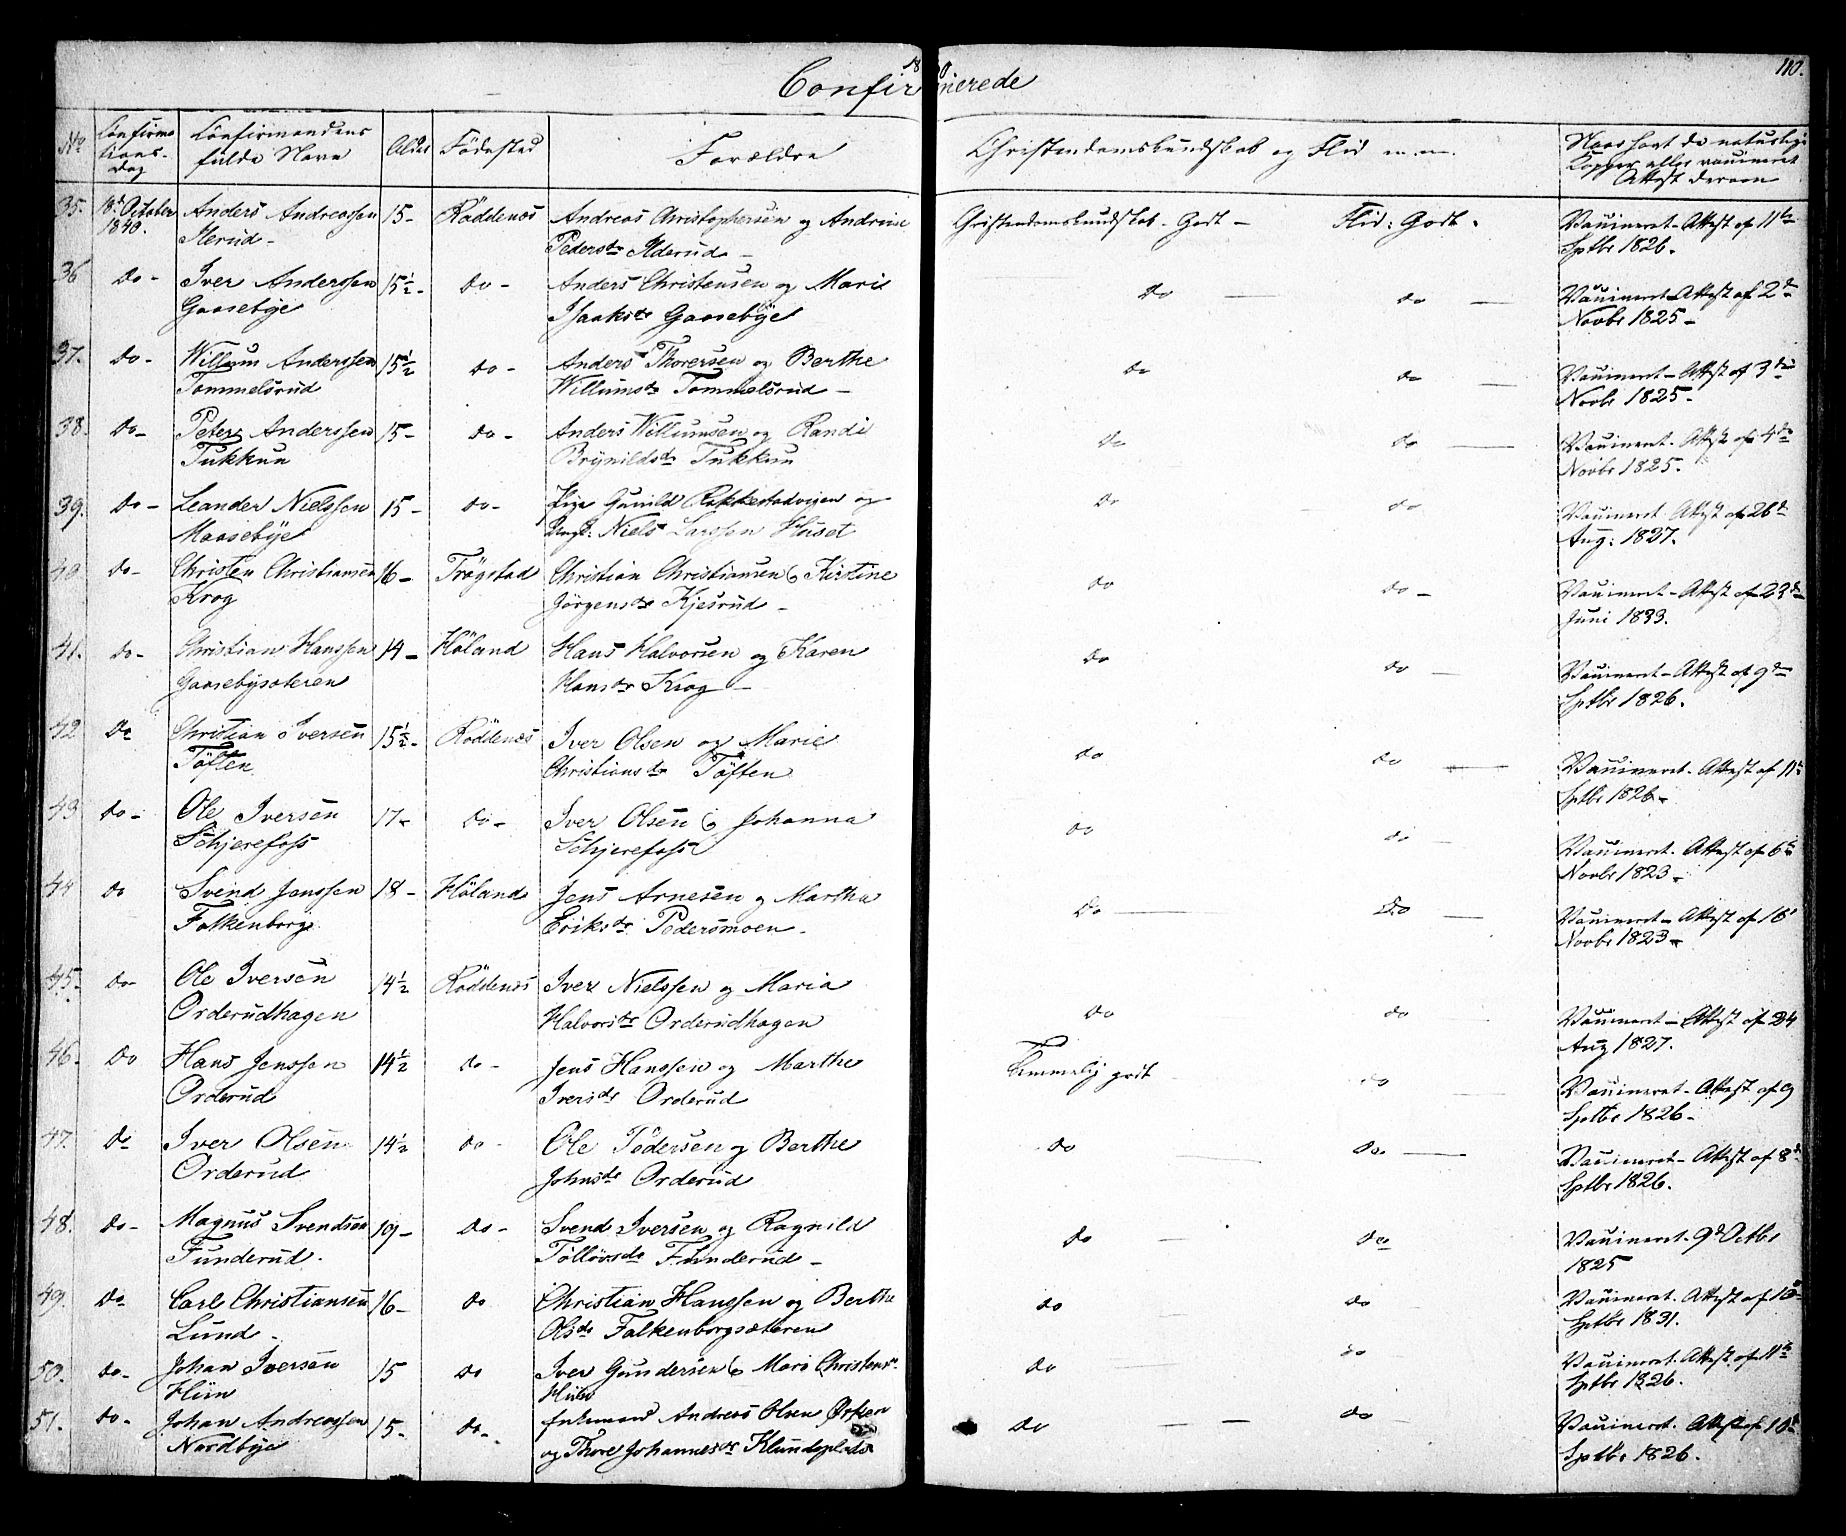 Confirmerede
110.
No Confirmationsdag Confirmandens fulde Navn Alder Fødested Forældre Christendomskundskab og Flid m.m. Naar havt de naturlige Kopper eller vaccineret Attest derom
35. 18d October 1840. Anders Andreassen 15- Röddenæs Andreas Christophersen og Andrine Christendomskundskab. Godt - Flid: Godt. Vaccineret - Attest af 11te
Ilerud - Pedersdr Ilderud - Septbr 1826.
36 Do - Iver Anderssen 15½- do - Anders Christensen og Marie do do Vaccineret Attest af 2de
Gaasebye Isaksdr Gaasebye Novbr 1825 -
37. do - Willum Anderssen 15½ do - Anders Thorersen og Berthe do do Vaccineret - Attest af 3die
Tommelsrud Willumsdr Tommelsrud - Novbr 1825 -
38. do - Peter Anderssen 15- do - Anders Willumsen og Randi do do Vaccineret. Attest af 4de
Tukkun Brynildsdr Tukkun Novbr 1825.
39. Do - Leander Nielssen 15- do - Pige Gunild Rakkestadvigen og do do Vaccineret Attest af 26d
Maasebye Ungk: Niels Larssen Huset Aug: 1827.
40 do - Christen Christiansen 16- Trøgstad Christian Christiansen og Kirstine do do - Vaccineret - Attest af 23de
Krog Jørgensdr Kjesrud - Juni 1833.
41. do - Christian Hanssen 14- Höland Hans Halvorsen og Karen do do - Vaccineret - Attest af 9de
Gaasebysæteren Hansdr Krog - Septbr 1826.
42 Do Christian Iversen 15½- Röddenæs Iver Olsen og Marie do do Vaccineret. Attest af 11te
Töften Christiansdr Töften Septbr 1826 -
43 do - Ole Iversen 17- do - Iver Olsen og Johanna do do Vaccineret. Attest af 6te
Schjerefoss Schjerefoss Novbr 1823 -
44 do Svend Jenssen 18- Höland Jens Arnesen og Martha Do Do Vaccineret - Attest af 16
Falkenborg Eriksdr Pedersmoen - Novbr 1823 -
45. do - Ole Iversen 14½ Röddenæs Iver Nielssen og Maria do do Vaccineret - Attest af 24
Orderudhagen Halvorsdr Orderudhagen Aug 1827.
46. Do Hans Jenssen 14½ do - Jens Hanssen og Marthe Temmelig godt do Vaccineret - Attest af 9
Orderud Iversdr Orderud Septbr 1826 -
47. Do Iver Olsen 14½ do - Ole Pedersen og Berthe do do - Vaccineret - Attest af 8de
Orderud Johnsdr Orderud Septbr 1826.
48. do - Magnus Svendsen 19- do - Svend Iversen og Ragnild do do Vaccineret. 9d Octbr
Funderud. Tollevsdr Funderud - 1825
49. Do Carl Christiansen 16- do Christian Hanssen og Berthe do do Vaccineret. Attest af 10
Lund - Olsdr Falkenborgsæteren Septbr 1831.
50. do - Johan Iversen 15 do Iver Gundersen og Mari Christensdr do do Vaccineret. Attest af 11te
Hiin Hiin Septbr 1826.
51. do - Johan Andreassen 15- do - Enkemand Andreas Olsen Ørken do do Vaccineret. Attest af 10de
Nordbye og Thore Johannesdr Klundsplads Septbr 1826.